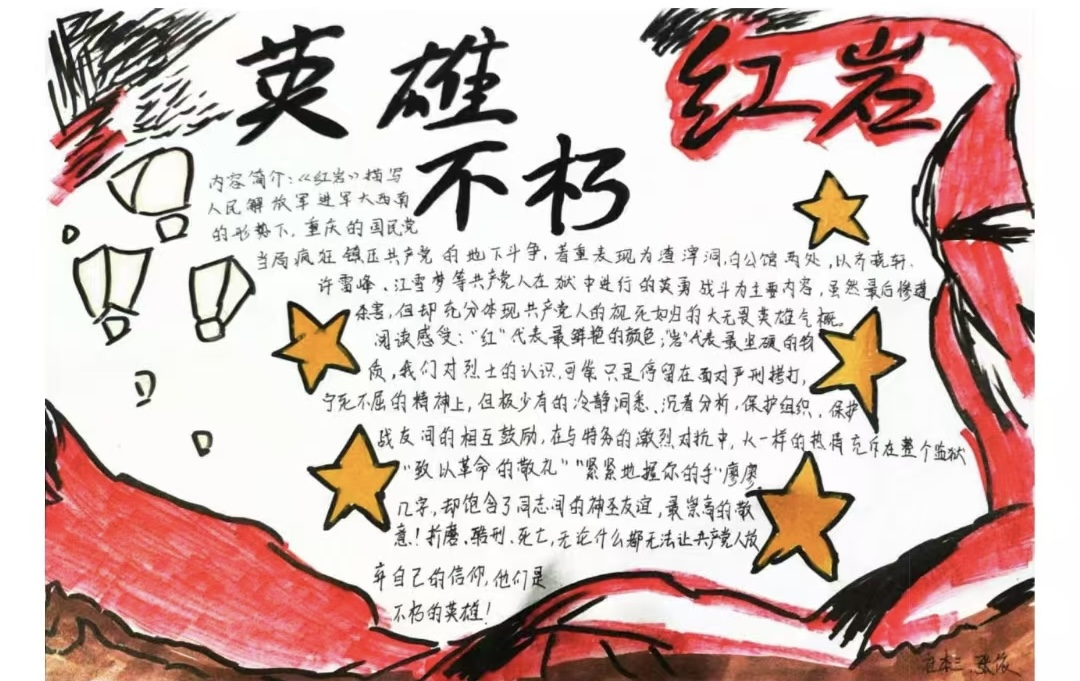 英雄
不朽
红岩
内容简介:《红岩》描写
人民解放军进军大西南
的形势下,重庆的国民党
当局疯狂镇压共产党的地下斗争,着重表现为渣滓洞,白公馆两处,以齐晓轩、
许雪峰、江雪梦等共产党人在狱中进行的英勇战斗为主要内容,虽然最后惨遭
杀害,但却充分体现共产党人的视死如归的大无畏英雄气概。
阅读感受:“红”代表最鲜艳的颜色,“岩”代表最坚硬的物
质,我们对烈士的认识,可能只是停留在面对严刑拷打,
宁死不屈的精神上,但极少有的冷静洞悉、沉着分析,保护组织、保护
战友间的相互鼓励,在与特务的激烈对抗中,火一样的热情充斥在整个监狱
“致以革命的敬礼”“紧紧地握你的手”廖廖
几字,却饱含了同志间的神圣友谊,最崇高的敬
意!折磨、酷刑、死亡,无论什么都无法让共产党人放
弃自己的信仰,他们是
不朽的英雄!